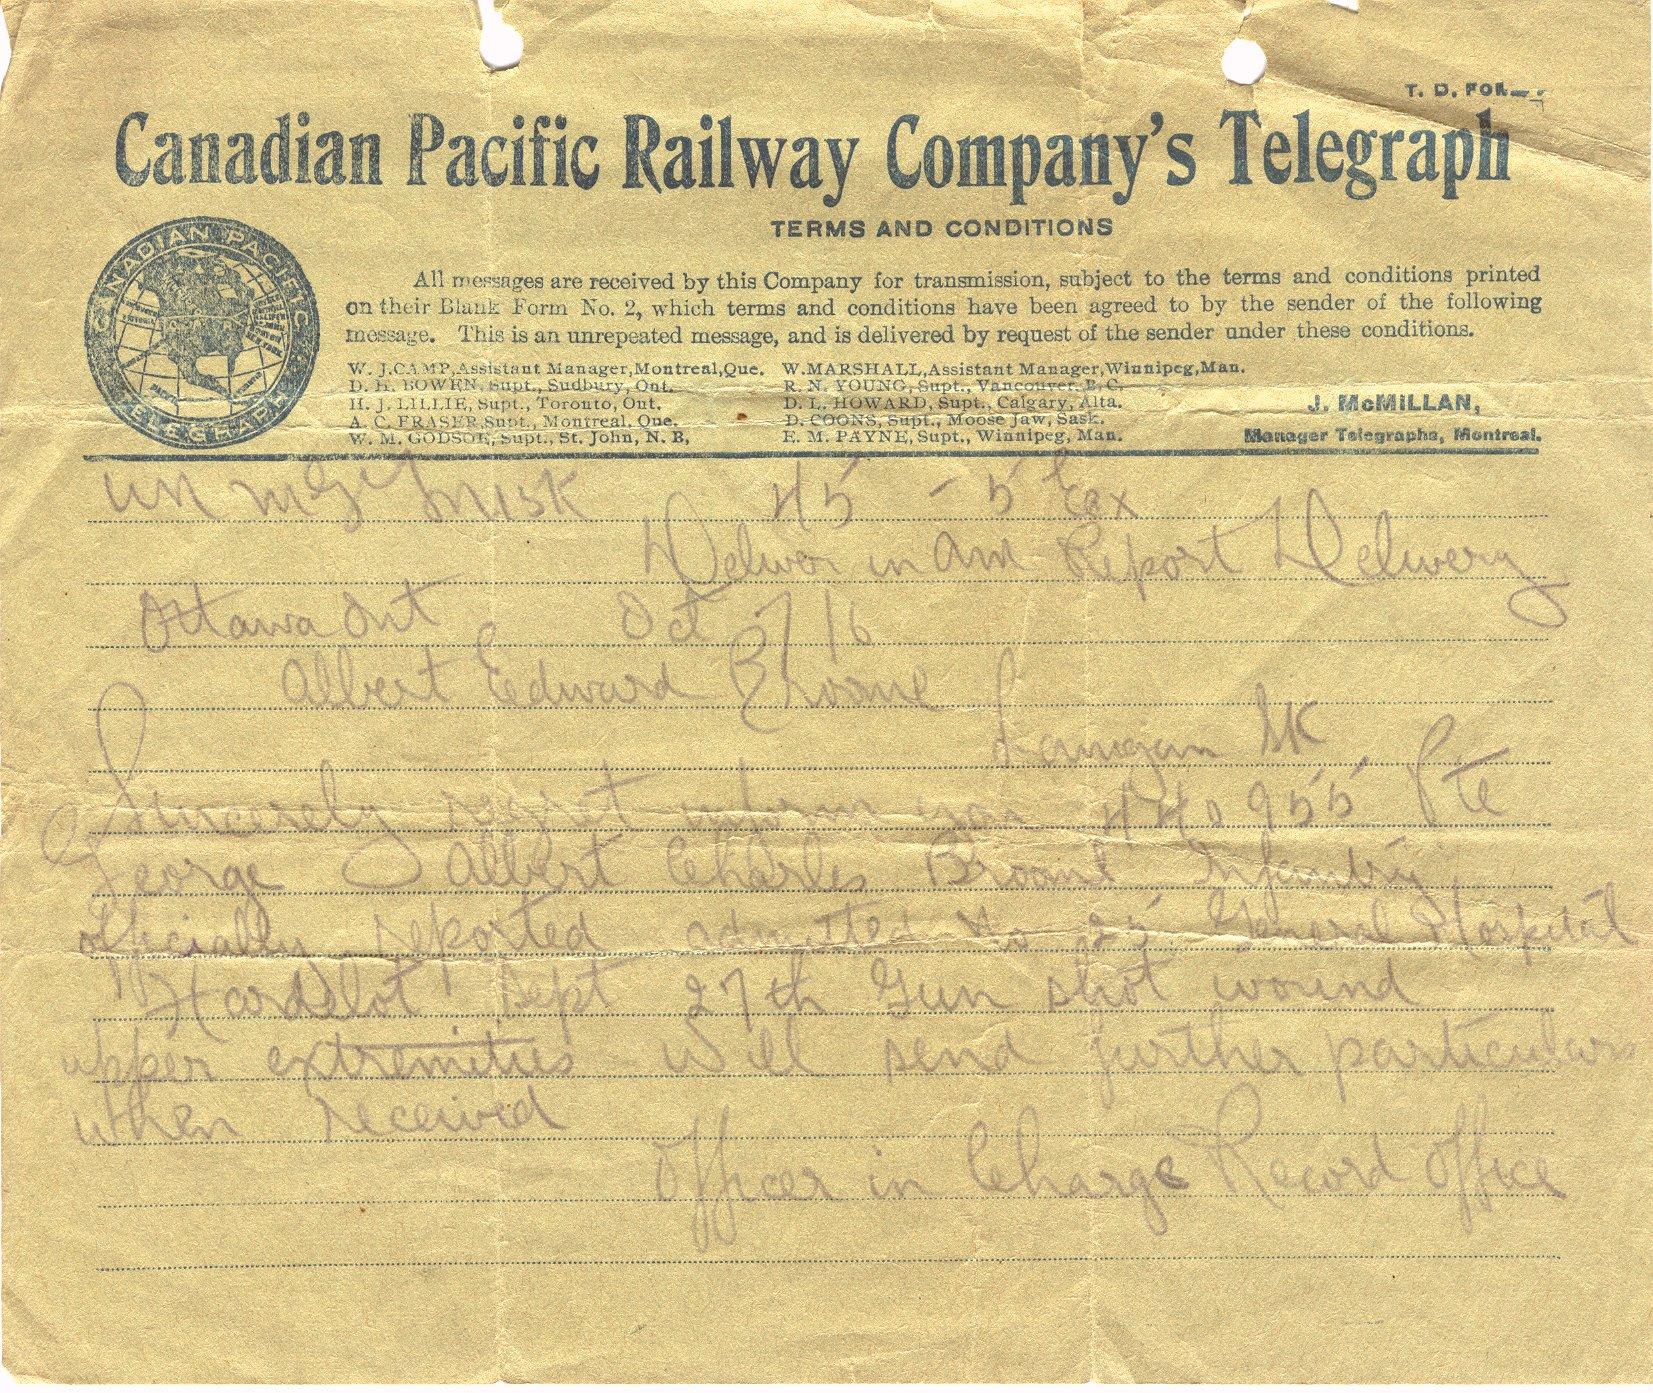 T. D. FOR
Canadian Pacific Railway Company's Telegraph
TERMS AND CONDITIONS
CANADIAN PACIFIC R.
TELEGRAPH
All messages are received by this Company for transmission, subject to the terms and conditions printed
on their Blank Form No. 2, which terms and conditions have been agreed to by the sender of the following
message. This is an unrepeated message, and is delivered by request of the sender under these conditions.
W. J. CAMP, Assistant Manager, Montreal, Que.
D. H. BOWEN, Supt., Sudbury, Ont.
H. J. LILLIE, Supt., Toronto, Ont.
A. C. FRASER, Supt., Montreal, Que.
W. M. GODSOE, Supt., St. John, N. B,
W. MARSHALL, Assistant Manager, Winnipeg, Man.
R. N. YOUNG, Supt., Vancouver, B. C.
D. L. HOWARD, Supt., Calgary, Alta.
D. COONS, Supt., Moose Jaw, Sask.
E. M. PAYNE, Supt., Winnipeg, Man.
J. McMILLAN,
Manager Telegraphs, Montreal.
45 - 5 Ex
Deliver in am Report Delivery
Ottawa Ont Oct 7 16
Albert Edward Broome
Lanigan SK
Sincerely regret inform you 440955 Pte
George Albert Charles Broome Infantry
officially reported admitted to 25 General Hospital
Hardelot Sept 27th Gun shot wound
upper extremities Will send further particulars
when received
Officer in Charge Record Office